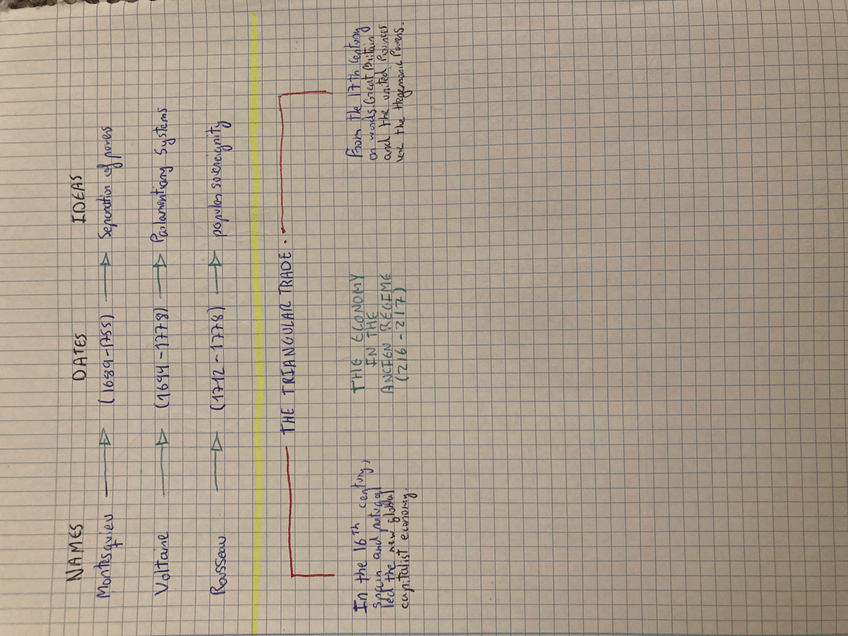 NAMES DATES IDEAS
Montesquieu (1689-1755) Separation of powers
Voltaire (1694-1778) Parlamentiary Systems
Rousseau (1712-1778) popular sovereignity
THE TRIANGULAR TRADE.
In the 16th century,
spain and portugal
led the new global
capitalist economy.
THE ECONOMY
IN THE
ANCIEN REGIME
(216-217)
From the 17th Century
onwords, Great Britain
and the united
the Hegemonic Powers.